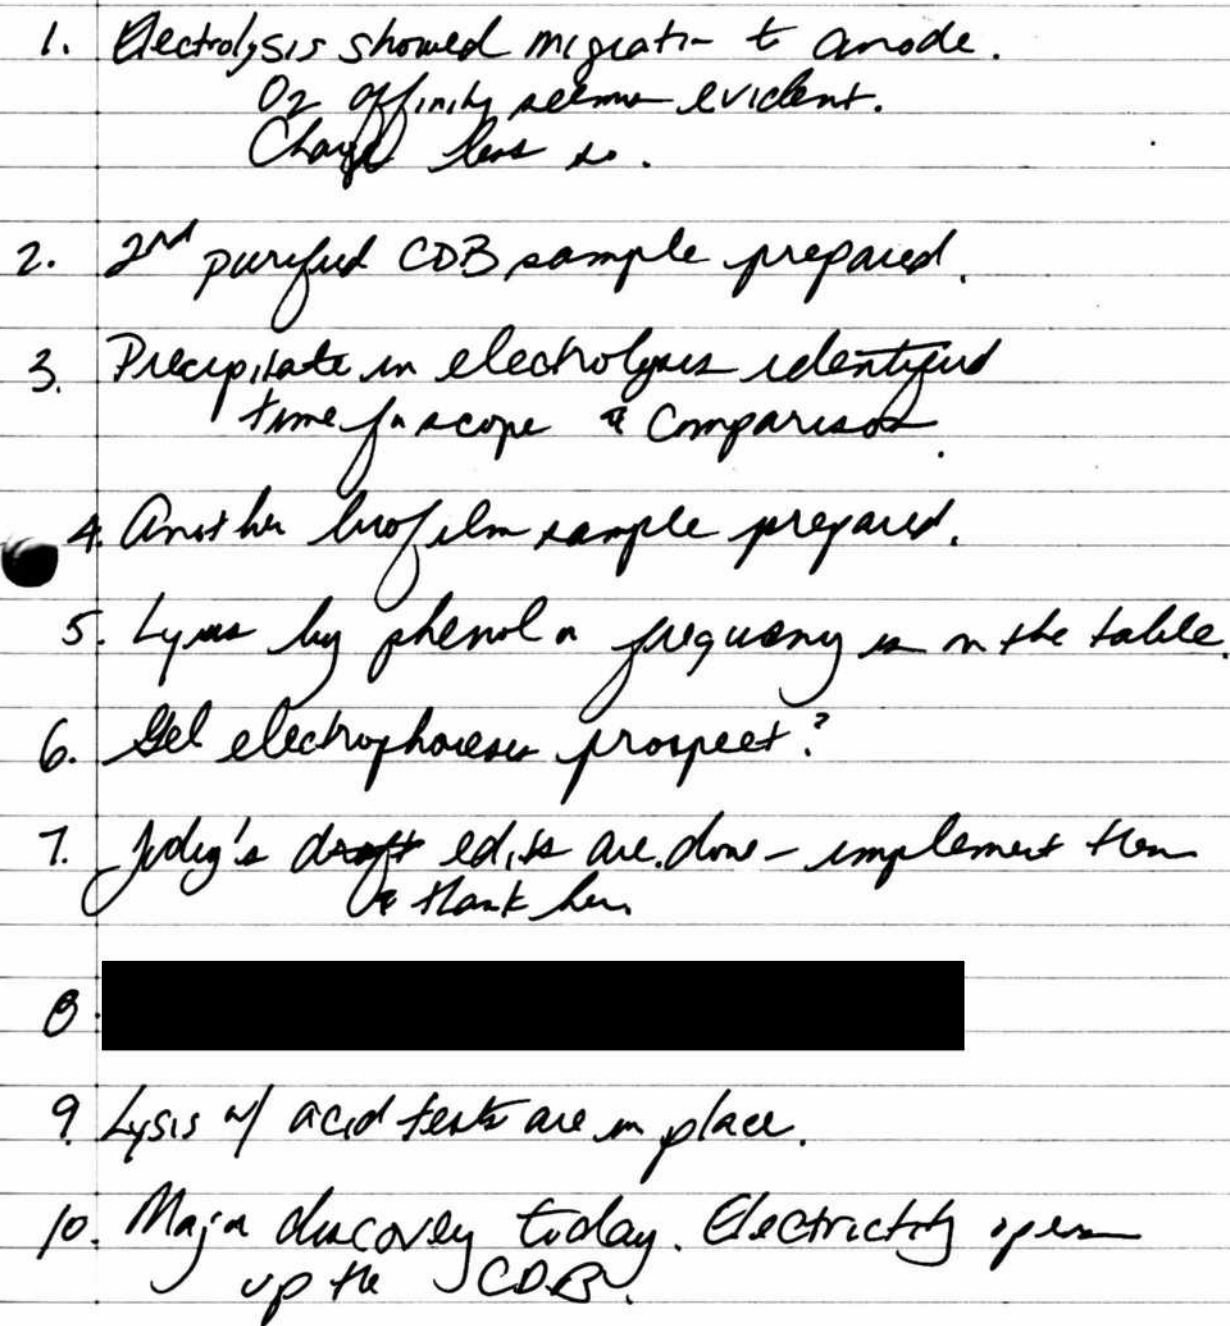 1. Electrolysis showed migration to anode.
O2 affinity seems evident.
Charge less so.
2. 2nd purified CDB sample prepared.
3. Precipitate in electrolysis identified
time for scope & comparison.
4. Another biofilm sample prepared.
5. Lysis by phenol or frequency is on the table.
6. Gel electrophoresis prospect?
7. Jody's draft edits are done - implement them
& thank her.
8.
9. Lysis w/ acid tests are in place.
10. Major discovery today. Electricity opens
up the CDB.